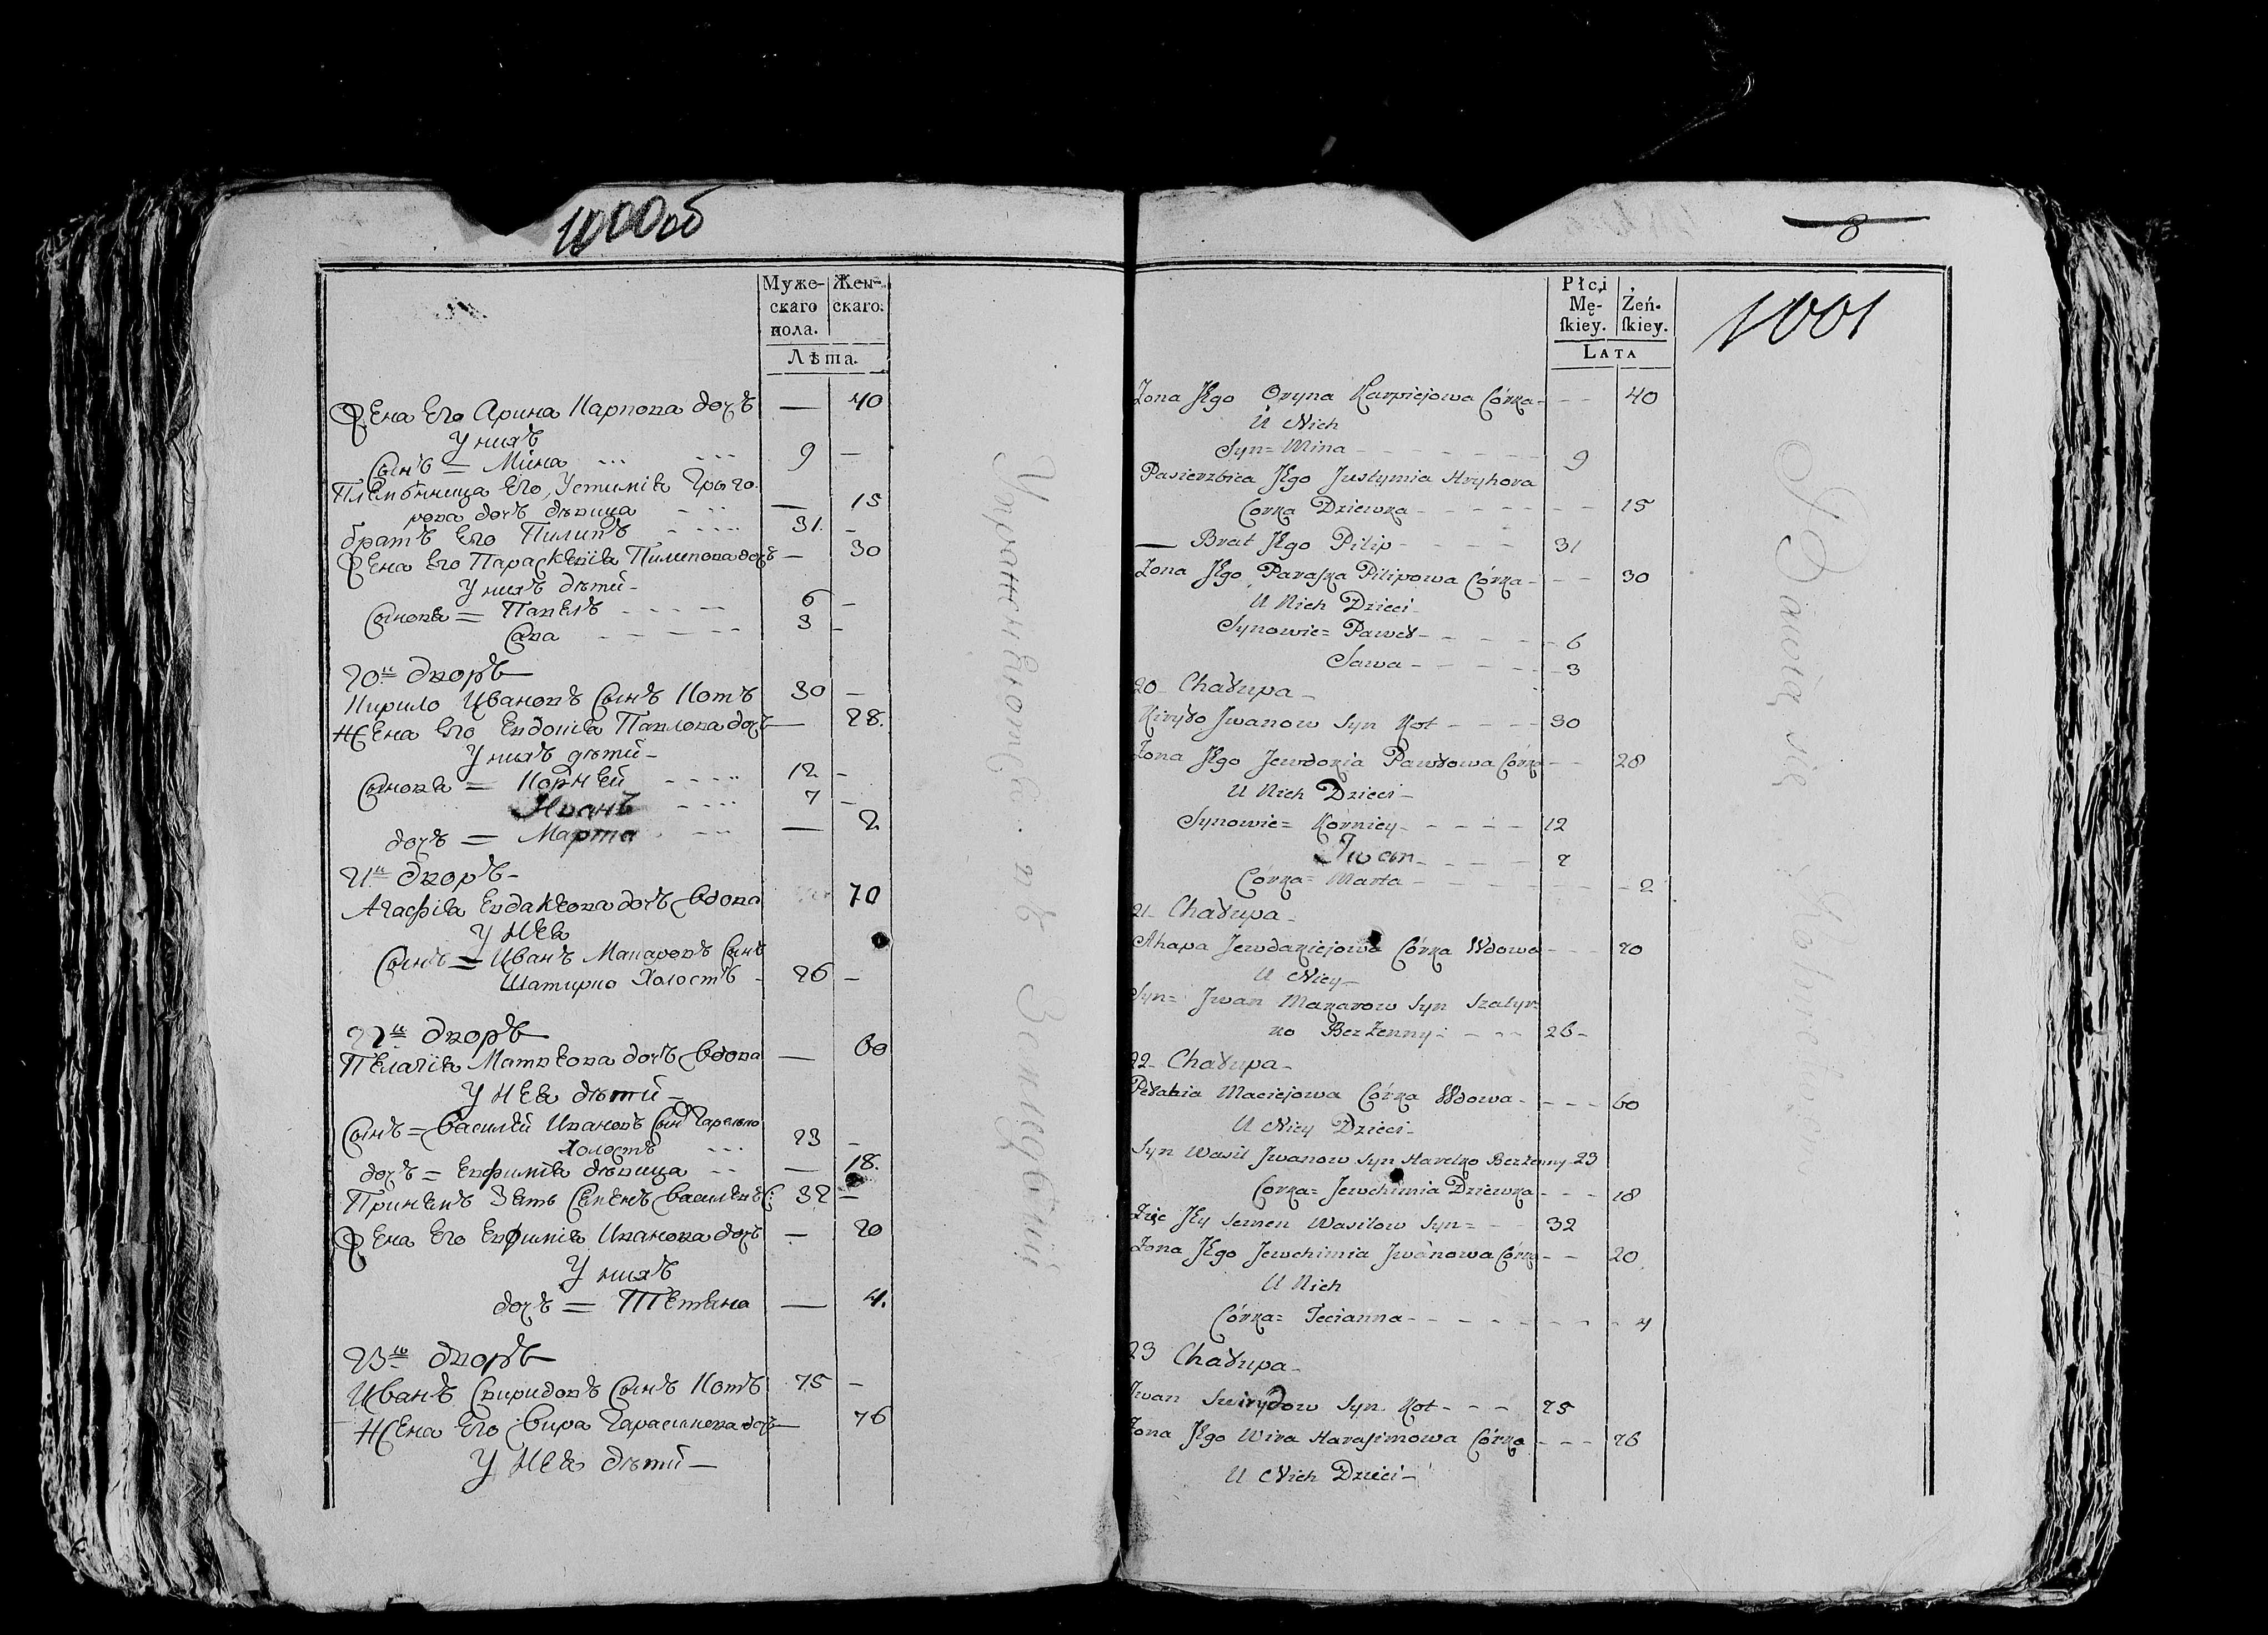 1000об
Муже-
скаго
пола.
Жен-
скаго.
Лѣта.
Жена Его Арина Карпова дочь — 40
У нихъ
Сынъ = Мина 9 —
Племѣнница Его, Устимія Грыго-
рова дочь дѣвица — 15
братъ Его Пилипъ 31. —
Жена Его Параскевія Пилипова дочь — 30
У нихъ дѣти -
Сынова = Павелъ 6 —
Сава 3 —
20й дворъ
Кирило Ивановъ Сынъ Котъ 30 —
Жена Его Евдокія Павлова дочь — 28.
У нихъ дѣти -
Сынова = Корнѣй 12 —
Иванъ 7 —
дочь = Марта — 2
21й дворъ -
Агафія Евдакеова дочь вдова 70
У нея
Сынъ = Иванъ Макаровъ Сынъ
Шатирко Холостъ - 26 —
22й дворъ
Пелагія Матвеова дочь вдова — 60
У нея дѣти -
Сынъ = василей Ивановъ Сынъ Гарелко
Холостъ 23 —
дочь = Евфимія дѣвица — 18.
Принятъ Зять Семенъ васильевъ С: 32 —
Жена Его Евфимія Иванова дочь — 20
У нихъ
дочь = Тетяна — 4.
23й дворъ
Иванъ Свиридовъ Сынъ Котъ 75 —
Жена Его вира Гарасимова дочь — 76
У нея дѣти —
Упражняютса въ Земледѣліи
8
1001
Płci
Mę-
ſkiey.
Żeń-
ſkiey.
LATA
Zona Jego Oryna Karpiejowa Córka - - - 40
U Nich
Syn = Mina - - - 9
Pasierzbica Jego Justymia Hryhora
Corka Dziewka - - - 15
— Brat Jego Pilip - - - 31
Zona Jego Paraſka Pilipowa Córka - - - 30
U Nich Dzieci -
Synowie = Paweł - - - 6
Sawa - - - 3
20 - Chałupa -
Kiryło Jwanow Syn Kot - - - 30
Zona Jego Jewdokia Pawłowa Córka - - 28
U Nich Dzieci -
Synowie = Korniey - - - 12
Jwan - - - 7
Córka = Marta - - - 2
21 - Chałupa -
Ahapa Jewdakiejowa Córka Wdowa - - - 70
U Niey -
Syn = Jwan Makarow Syn Szatyr-
ko Bezżenny - - - 26 -
22 - Chałupa -
Pełahia Maciejowa Córka Wdowa - - - 60
U Niey Dzieci -
Syn Wasil Jwanow Syn Harelko Bezżenny - 23
Corka = Jewchimia Dziewka - - - 18
Zięc Jey Semen Wasilow Syn = - 32
Zona Jego Jewchimia Jwanowa Córka - - 20
U Nich
Córka = Tecianna - - - 4
23 Chałupa -
Jwan Swirydow Syn Kot - - - 75
Zona Jego Wira Haraſimowa Córka - - - 76
U Nich Dzieci -
Bawią się